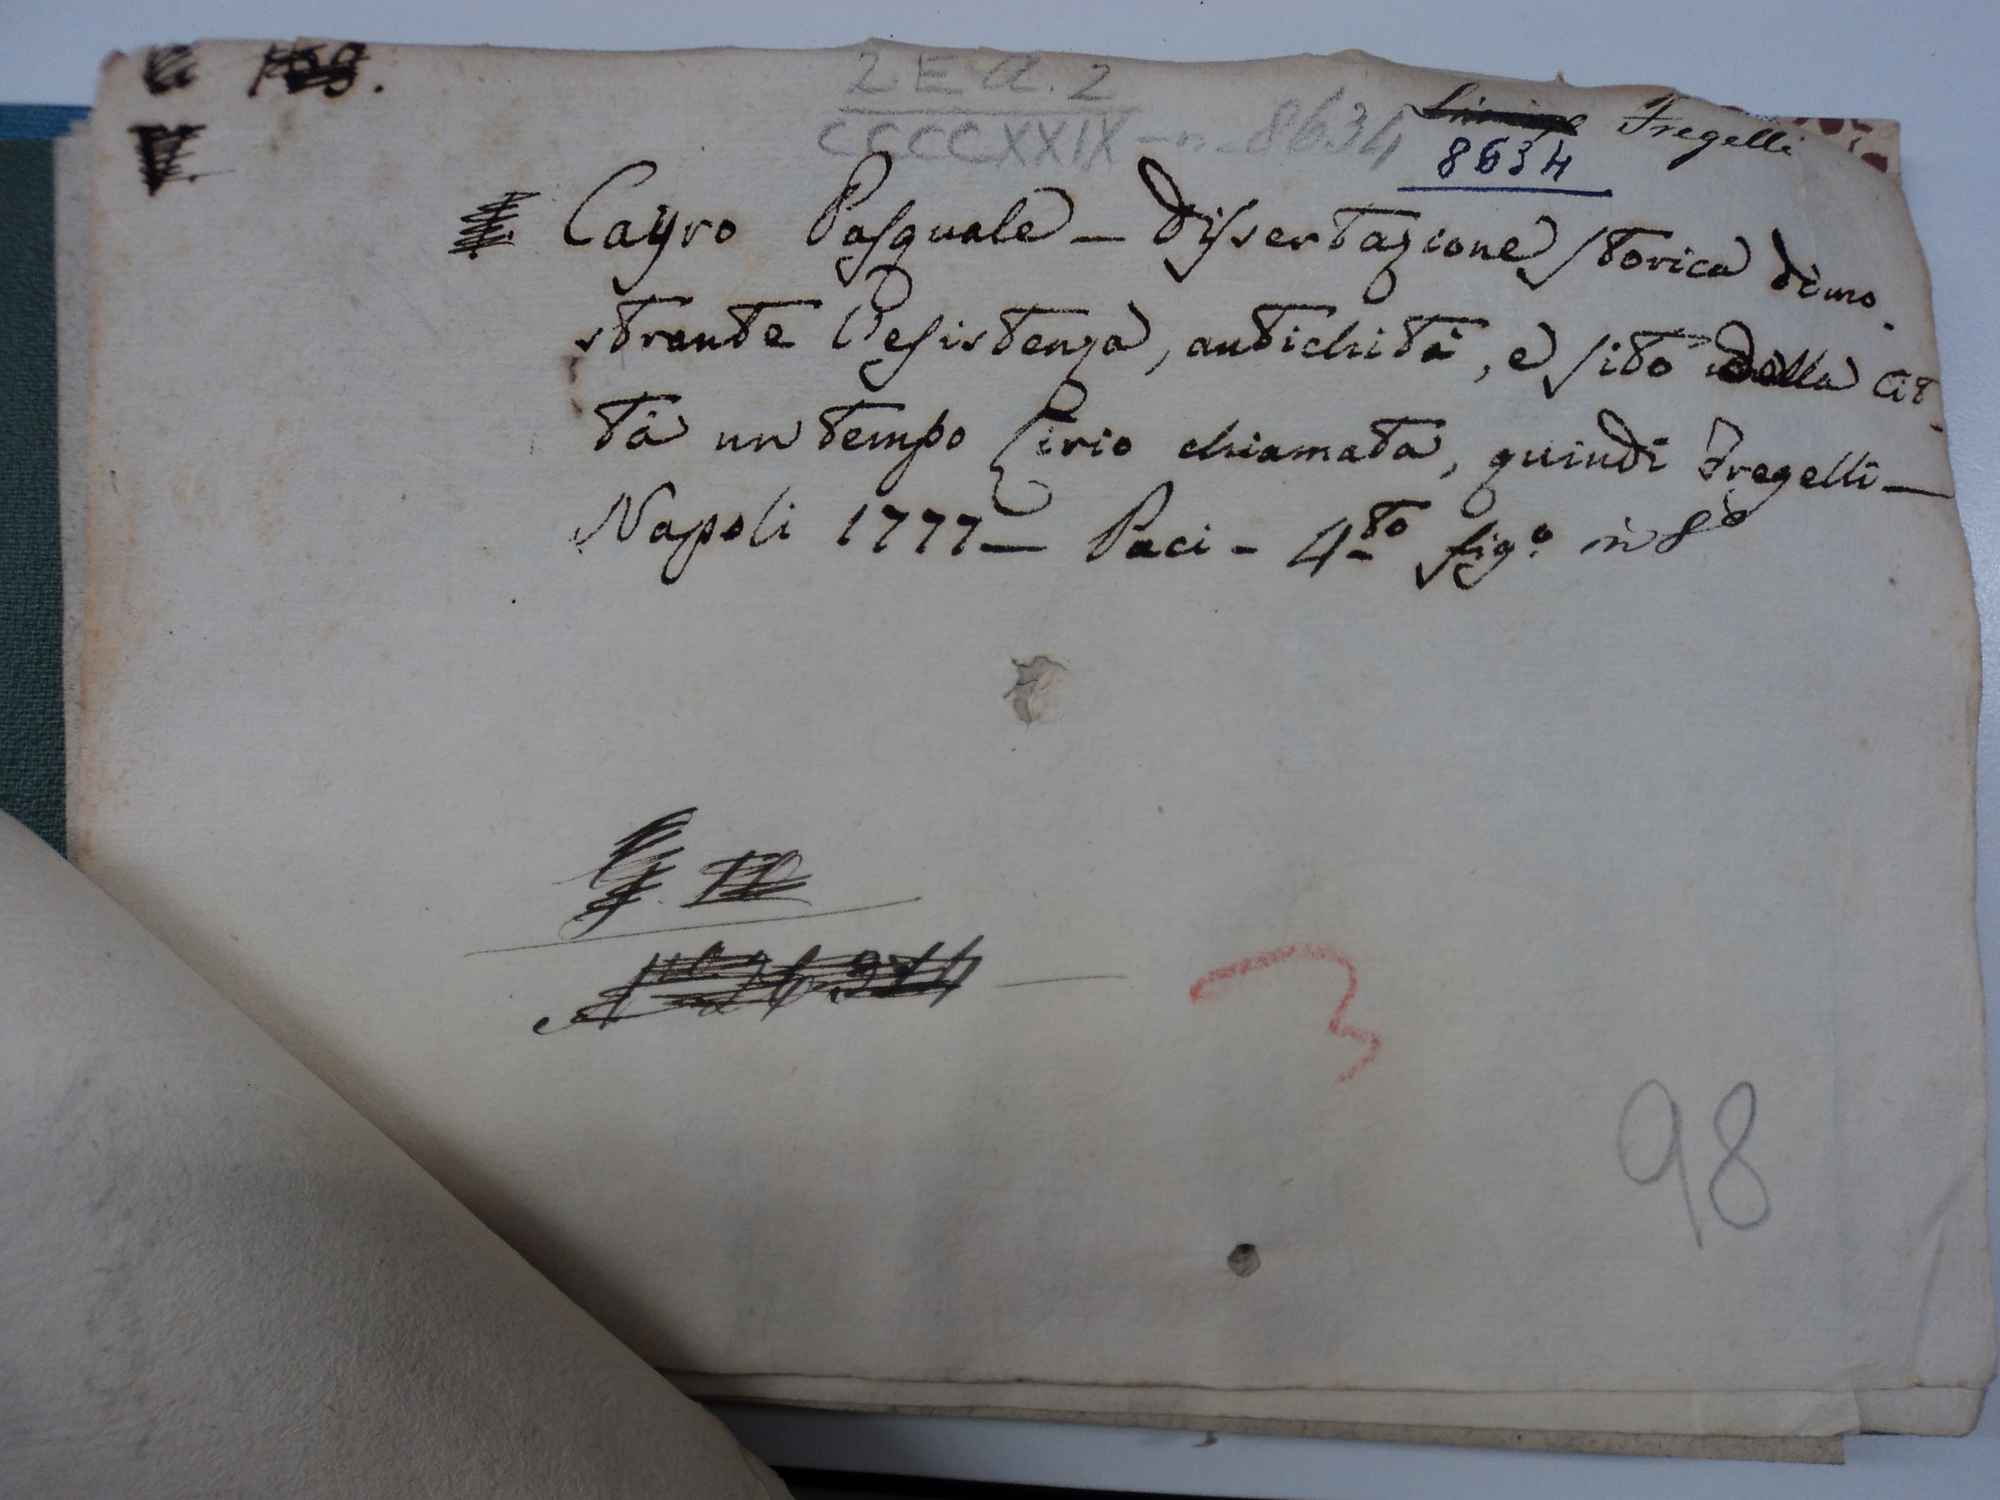 2 E a. 2
CCCCCXXIX - n. 8634
Fregelli
8634
Cayro Pasquale - dissertazione storica dimo.
strante l'esistenza, antichità, e sito della Cit
tà un tempo Lirio chiamata, quindi Fregelli -
Napoli 1777 - Paci - 4.to fig.o in 8o
3
98